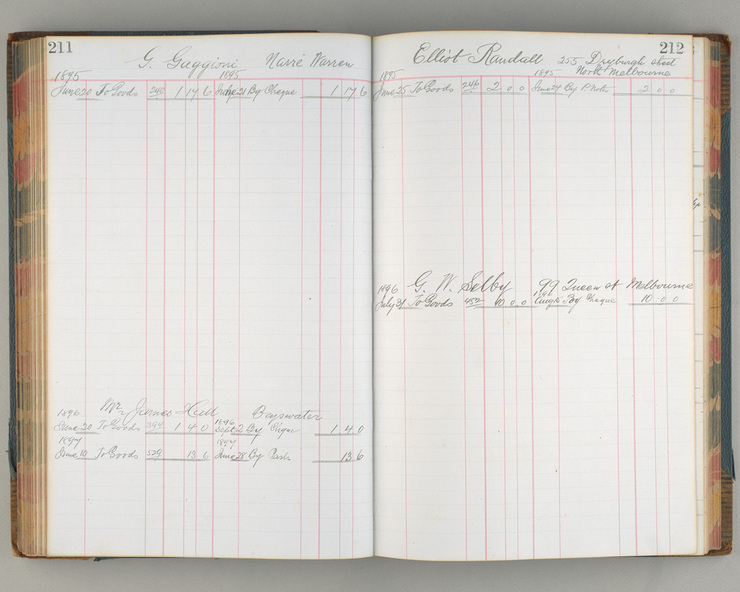 211
G. Gaggioni Narré Warren
1895 1895
June 20 To Goods 1 17 6 21 By Cheque 1 17 6
1896 Mr James Hill Bayswater
June 30 To Goods 1 4 0 1896 Sept 2 By Cheque 1 4 0
1897 1897
June 10 To Goods 329 13 6 June 28 By Cash 13 6
212
Elliot Randall 255 Dryburgh street
North Melbourne
1895 1895
June 25 To Goods 246 2 0 0 June 27 By P. Notes 2 0 0
1896 G. W. Selby 99 Queen st Melbourne
July 31 To Goods 452 10 0 0 1896 Aug By Cheque 10 0 0